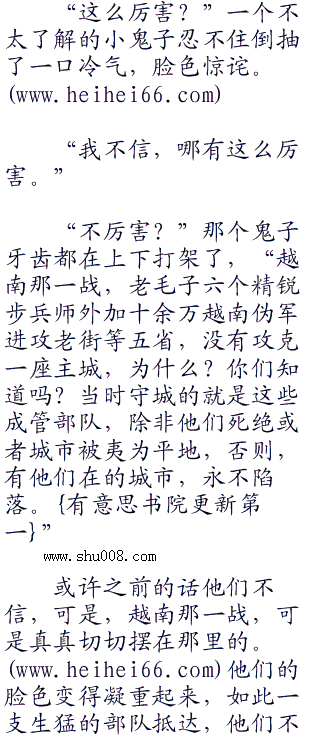 “这么厉害？”一个不
太了解的小鬼子忍不住倒抽
了一口冷气，脸色惊诧。
(www.heihei66.com)
“我不信，哪有这么厉
害。”
“不厉害？”那个鬼子
牙齿都在上下打架了，“越
南那一战，老毛子六个精锐
步兵师外加十余万越南伪军
进攻老街等五省，没有攻克
一座主城，为什么？你们知
道吗？当时守城的就是这些
成管部队，除非他们死绝或
者城市被夷为平地，否则，
有他们在的城市，永不陷
落。{有意思书院更新第
一}”
www.shu008.com
或许之前的话他们不
信，可是，越南那一战，可
是真真切切摆在那里的。
(www.heihei66.com)他们的
脸色变得凝重起来，如此一
支生猛的部队抵达，他们不